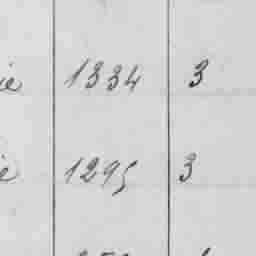 ie 1334 3
ie 1295 3